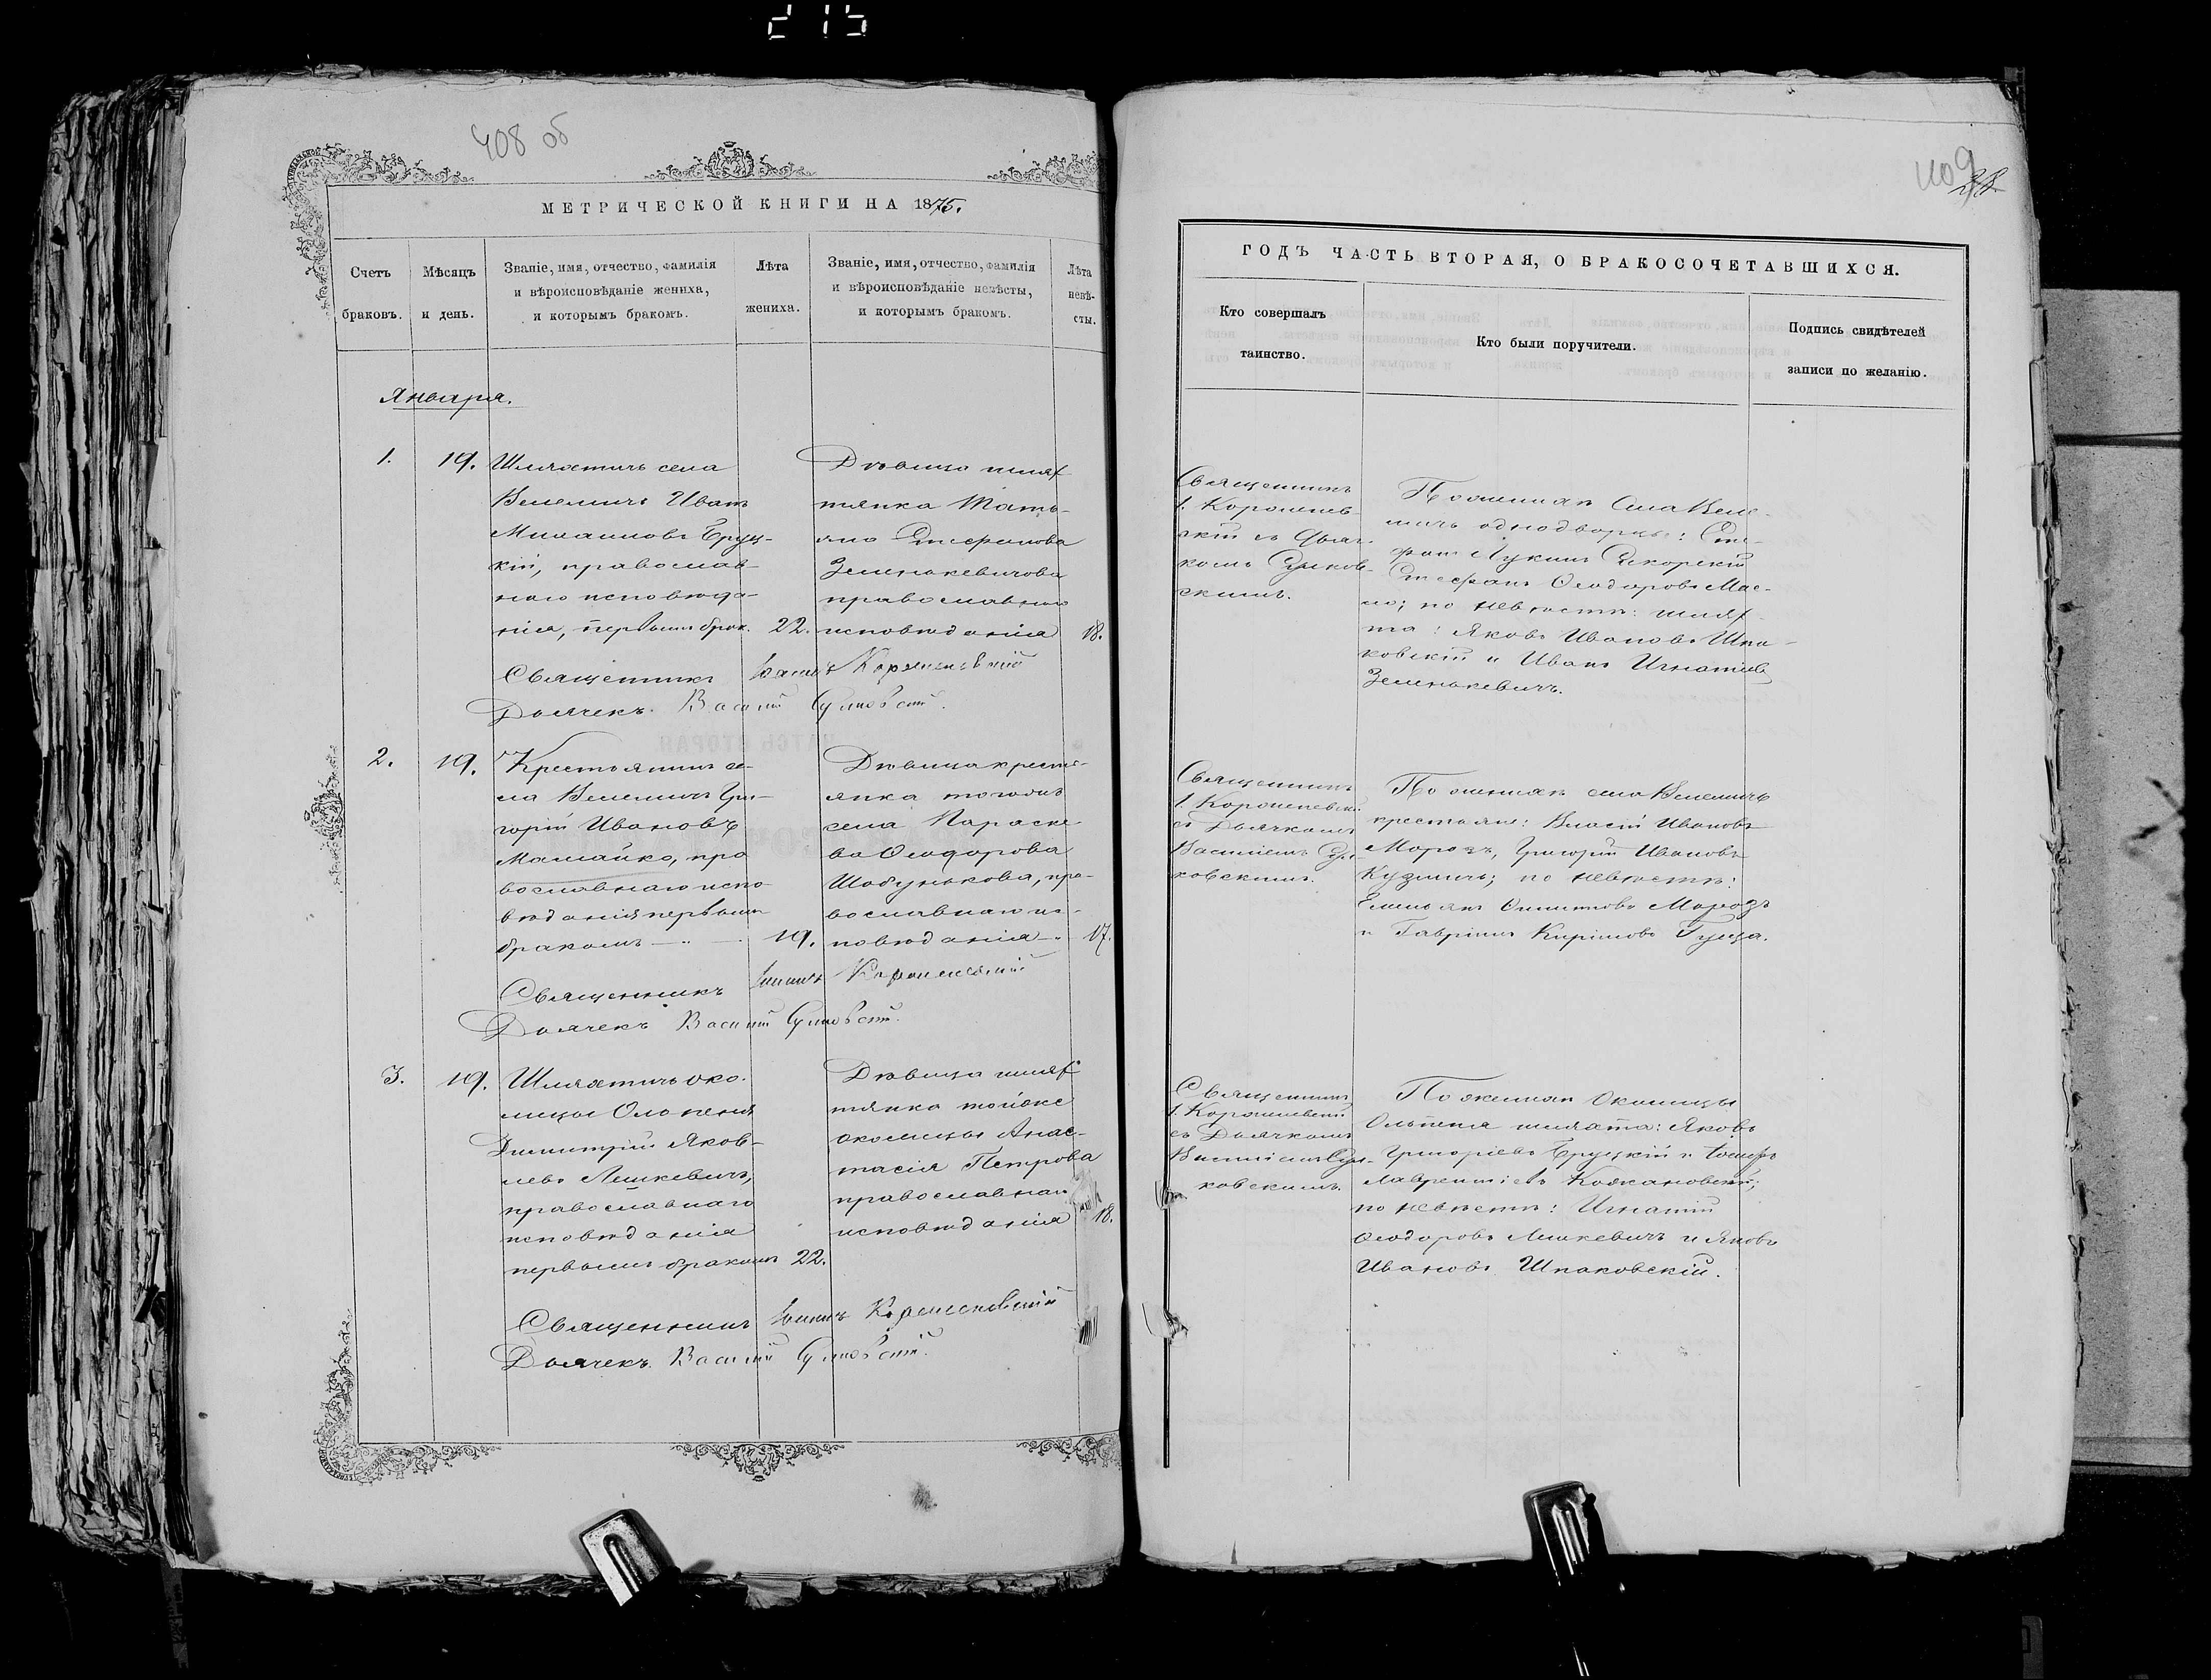 215
408 об
МЕТРИЧЕСКОЙ КНИГИ НА 1875.
Счетъ браковъ.
Мѣсяцъ и день.
Званіе, имя, отчество, фамилія
и вѣроисповѣданіе жениха,
и которымъ бракомъ.
Лѣта
жениха.
Званіе, имя, отчество, фамилія
и вѣроисповѣданіе невѣсты,
и которымъ бракомъ.
Лѣта
невѣ-
сты.
Января.
1.
19.
Шляхтичъ села
Велемичъ Иванъ
Михаиловъ Бруц-
кій, православ-
наго исповѣда-
нія, первымъ брак.
22.
Дѣвица шлях
тянка Тать-
яна Стефанова
Зенькевичова
православнаго
исповѣданія
18.
Священникъ Іоаннъ Короленевскій
Дьячекъ Василій
2.
19.
Крестьянинъ се-
ла Велемичъ Гри-
горій Ивановъ
Мамайко, пра
вославнаго испо-
вѣданія первымъ
бракомъ
19.
Дѣвица кресть-
янка тогожъ
села Параске
ва Ѳеодорова
Шобунькова, пра-
вославнаго ис-
повѣданія
17.
Священникъ Іоаннъ
Дьячекъ Василій
3.
19.
Шляхтичъ око-
лицы Ольпеня
Димитрій Яков-
левъ Лешкевичъ,
православнаго
исповѣданія
первымъ бракомъ
22.
Дѣвица шлях
тянка тойже
околицы Анас-
тасія Петрова
православнаго
исповѣданія
18.
Священникъ Іоаннъ
Дьячекъ Василій
409
ГОДЪ ЧАСТЬ ВТОРАЯ, О БРАКОСОЧЕТАВШИХСЯ.
Кто совершалъ
таинство.
Кто были поручители.
Подпись свидѣтелей
записи по желанію.
Священникъ
І.
скій съ Дьяч-
комъ
скимъ.
По женихѣ села Веле-
мичъ однодворцы: Сте-
фанъ Лукинъ Сикорскій
Стефанъ Ѳеодоровъ Мас-
ло; по невѣстѣ: шлях
та: Яковъ Ивановъ Шпа-
ковскій и Иванъ Игнатіевъ
Зенькевичъ.
Священникъ
І.
съ Дьячкомъ
Василіемъ
ковскимъ.
По женихѣ села Велемичъ
крестьяне: Власій Ивановъ
Морозъ, Григорій Ивановъ
Кузмичъ; по невѣстѣ:
Емельянъ Морозъ
и Гавріилъ Кириловъ Гуща.
Священникъ
І.
съ Дьячкомъ
Василіемъ
ковскимъ.
По женихѣ околицы
Ольпеня шляхта: Яковъ
Григоріевъ Бруцкій и Іосифъ
Лаврентіевъ Кожановскій;
по невѣстѣ: Игнатій
Ѳеодоровъ Лешкевичъ и Яковъ
Ивановъ Шпаковскій.